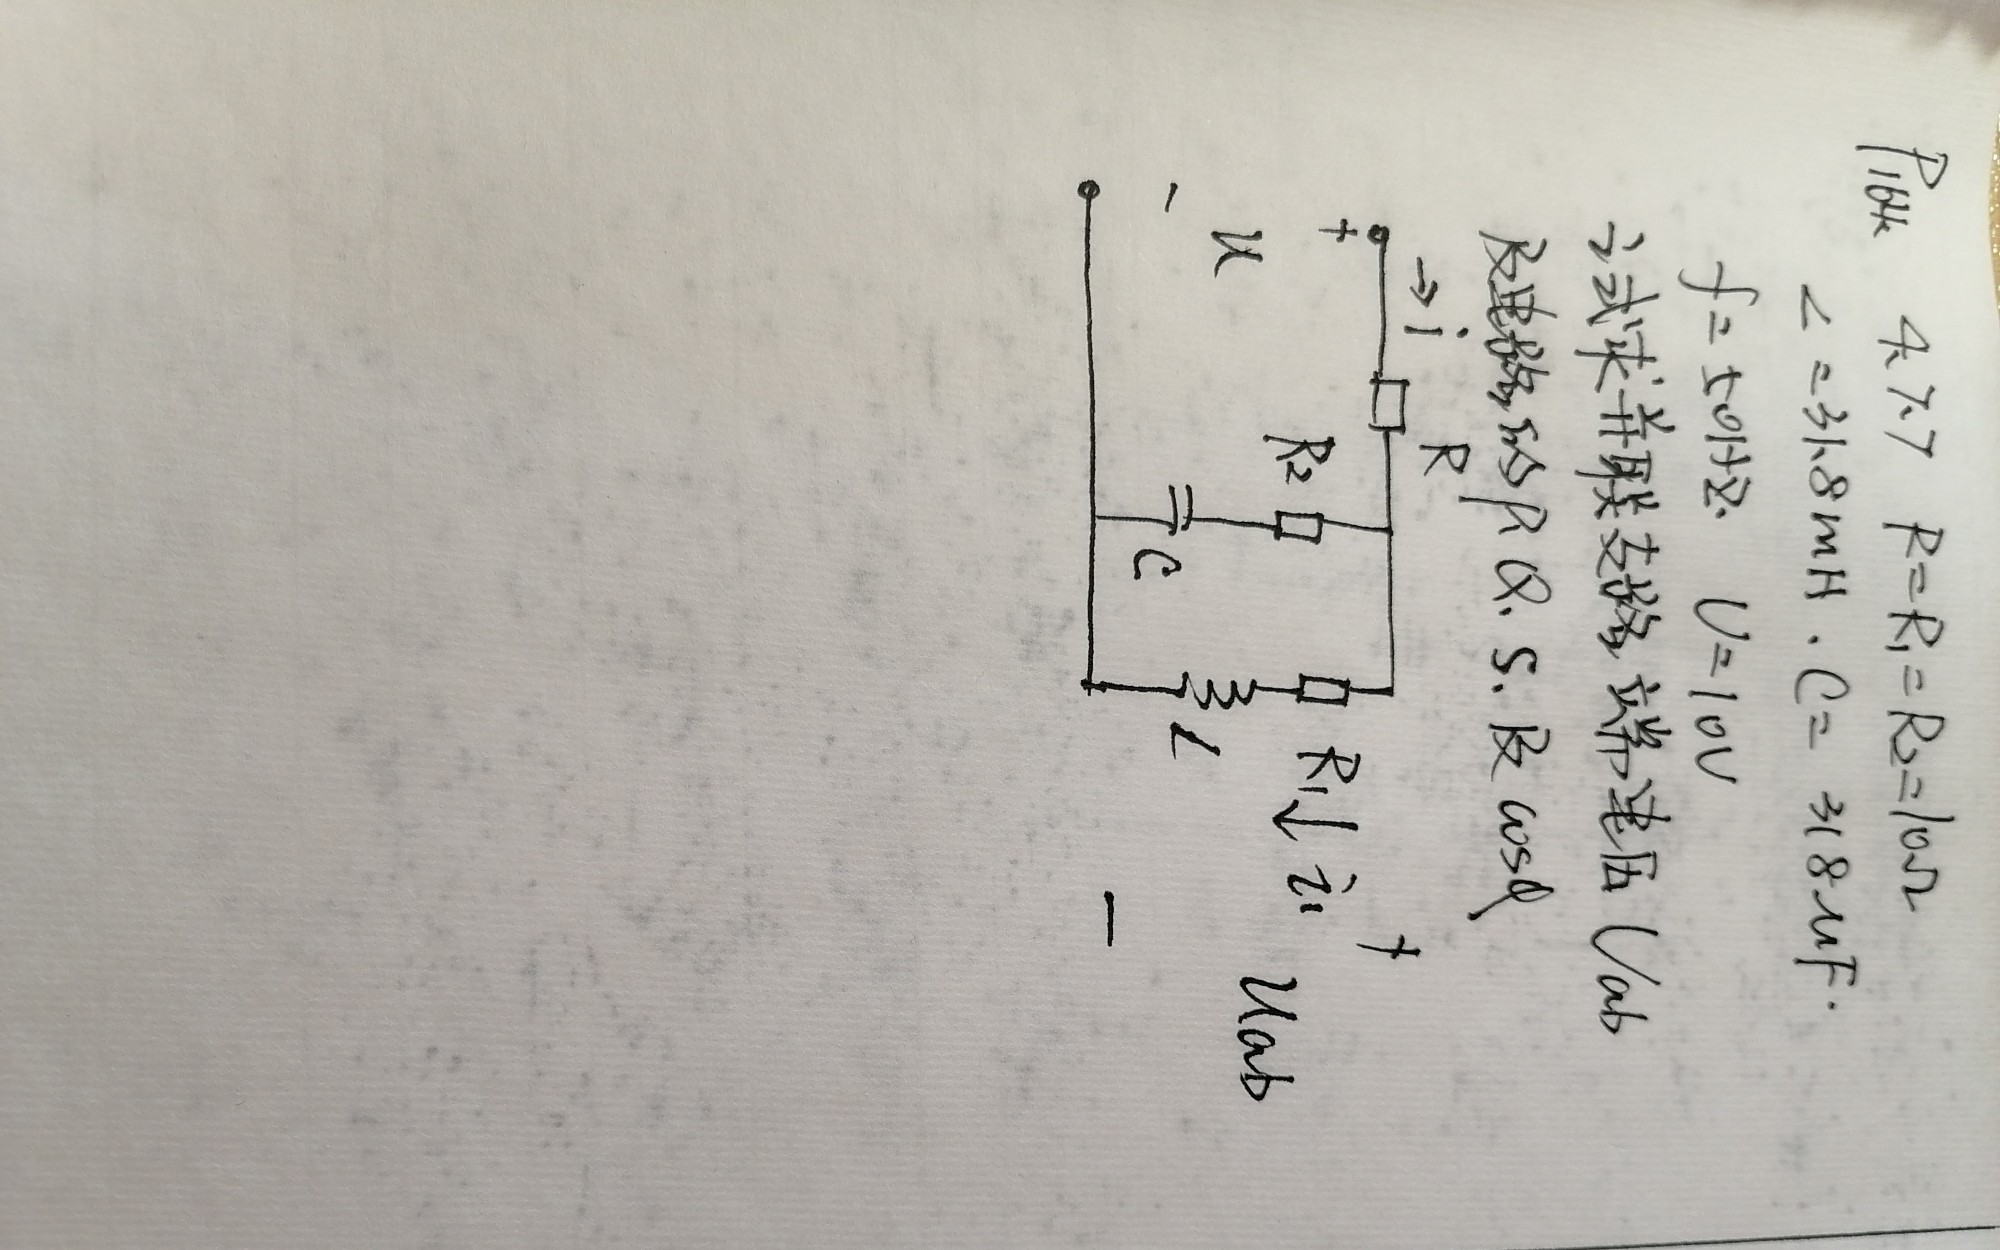 P164 4.7.7 R=R₁=R₂=10Ω
L=31.8mH. C=318μF.
f=50Hz. U=10V
试求并联支路端电压Uab
及电路的P.Q.S.及cosφ
→ i
R
+
u
-
R₂
C
R₁ ↓ i₁
L
+
Uab
-